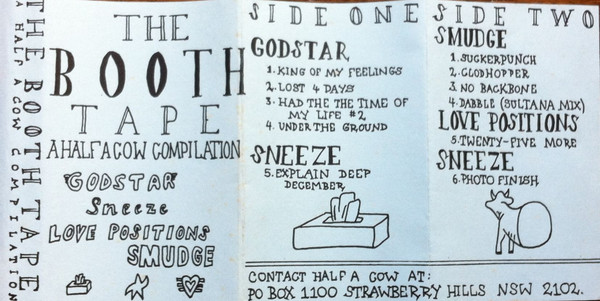 THE BOOTH TAPE
A HALF A COW COMPILATION
THE
BOOTH
TAPE
A HALF A COW COMPILATION
"GODSTAR"
Sneeze
LOVE POSITIONS
SMUDGE
SIDE ONE
GODSTAR
1. KING OF MY FEELINGS
2. LOST 4 DAYS
3. HAD THE THE TIME OF
MY LIFE #2
4. UNDER THE GROUND
SNEEZE
5. EXPLAIN DEEP
DECEMBER
SIDE TWO
SMUDGE
1. SUCKERPUNCH
2. CLODHOPPER
3. NO BACKBONE
4. DABBLE (SULTANA MIX)
LOVE POSITIONS
5. TWENTY-FIVE MORE
SNEEZE
6. PHOTO FINISH
CONTACT HALF A COW AT:
PO BOX 1100 STRAWBERRY HILLS NSW 2102.